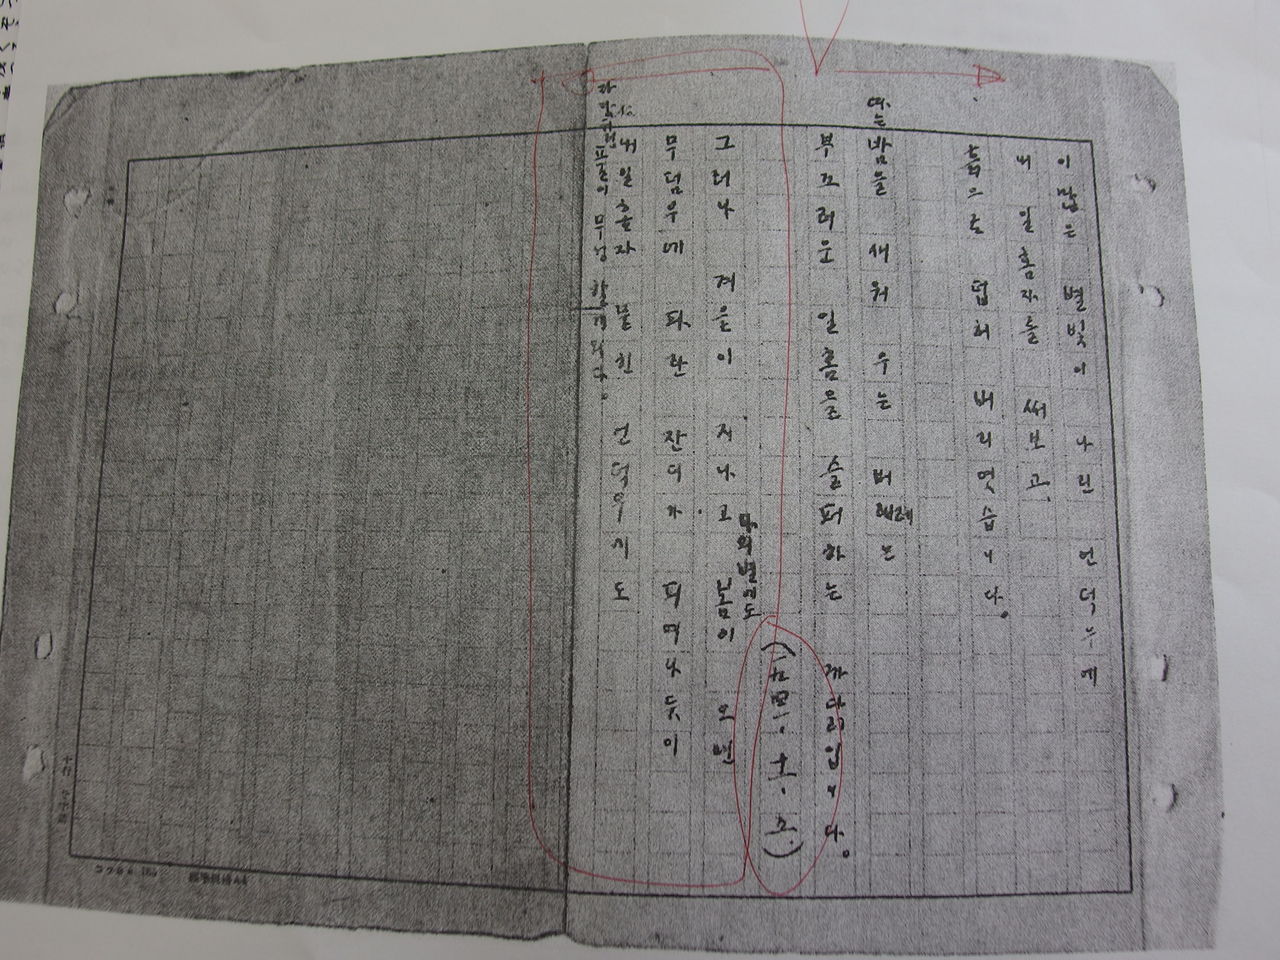 이 많은 별빛이 나린 언덕우에
내 일홈자를 써보고,
흙으로 덥허 버리엿습니다.
따는 밤을 새워 우는 버레는
부끄러운 일홈을 슬퍼하는 까닭입니다.
(一九四一、十一、五.)
그러나 겨을이 지나고 나의별에도 봄이 오면
무덤우에 파란 잔디가 피여나듯이
내일홈자 묻힌 언덕우에도
자랑처럼 풀이 무성 할게외다。